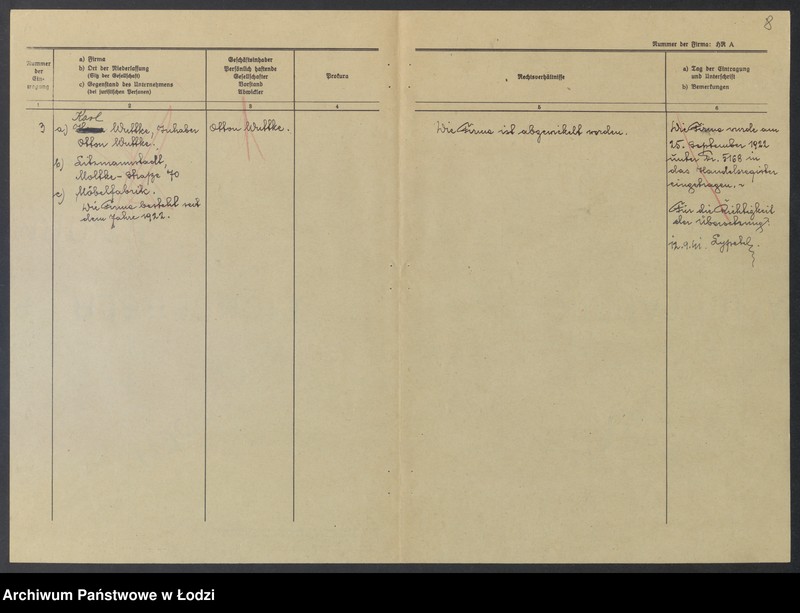 8
Nummer der Firma: HR A
Nummer
der
Ein-
tragung
a) Firma
b) Ort der Niederlassung
(Sitz der Gesellschaft)
c) Gegenstand des Unternehmens
(bei juristischen Personen)
Geschäftsinhaber
Persönlich haftende
Gesellschafter
Vorstand
Abwickler
Prokura
Rechtsverhältnisse
a) Tag der Eintragung
und Unterschrift
b) Bemerkungen
1
2
3
4
5
6
3
Karl
a.) Wuttke, Inhaber
Otton Wuttke.
b) Litzmannstadt,
Moltke-Straße 70
c) Möbelfabrik.
Die Firma besteht seit
dem Jahre 1922.
Otton Wuttke.
Die Firma ist abgewikelt worden.
Die Firma wurde am
25. September 1922
unter Nr. 5168 in
das Handelsregister
eingetragen.-
Für die Richtigkeit
der Übersetzung:
12.9.41.
Archiwum Państwowe w Łodzi